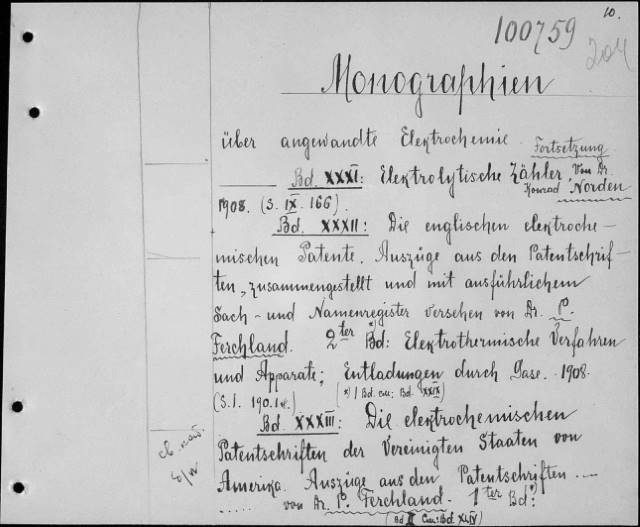 10.
100759
204
Monographien
über angewandte Elektrochemie. Fortsetzung
Bd. XXXI: Elektrolytische Zähler. Von Dr.
Konrad Norden
1908. (S. IX. 166)
Bd. XXXII: Die englischen elektroche-
mischen Patente. Auszüge aus den Patentschrif-
ten, zusammengestellt und mit ausführlichem
Sach- und Namenregister versehen von Dr. P.
Ferchland. 2ter *) Bd: Elektrothermische Verfahren
und Apparate; Entladungen durch Gase. 1908.
(S. I. 190.) (*) I Bd. см: Bd. XXIX)
Bd. XXXIII: Die elektrochemischen
Patentschriften der Vereinigten Staaten von
Amerika. Auszüge aus den Patentschriften ....
..... von Dr. P. Ferchland. 1ter Bd:
(Bd II См: Bd. XLIV)